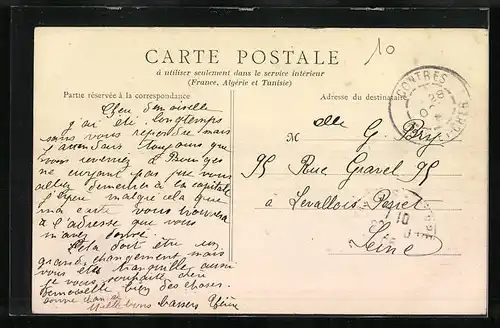 10
CARTE POSTALE
à utiliser seulement dans le service intérieur
(France, Algérie et Tunisie)
Partie réservée à la correspondance
Adresse du destinataire
Chère demoiselle
j'ai été longtemps
sans vous repondre mais
j'attendais toujours que
vous reveniez à Bourges
ne croyant pas que vous
alliez demeurer à la capitale
j'espère malgré cela que
ma carte vous trouvera
à l'adresse que vous
m'avez donné.
Cela doit être un
grand changement mais
vous êtes tranquille aussi
je vous souhaite chère
demoiselle bien des choses.
bons baisers
M elle G. Bry
95 Rue Gravel 95
à Levallois-Perret
Seine
CONTRES
28
CHER